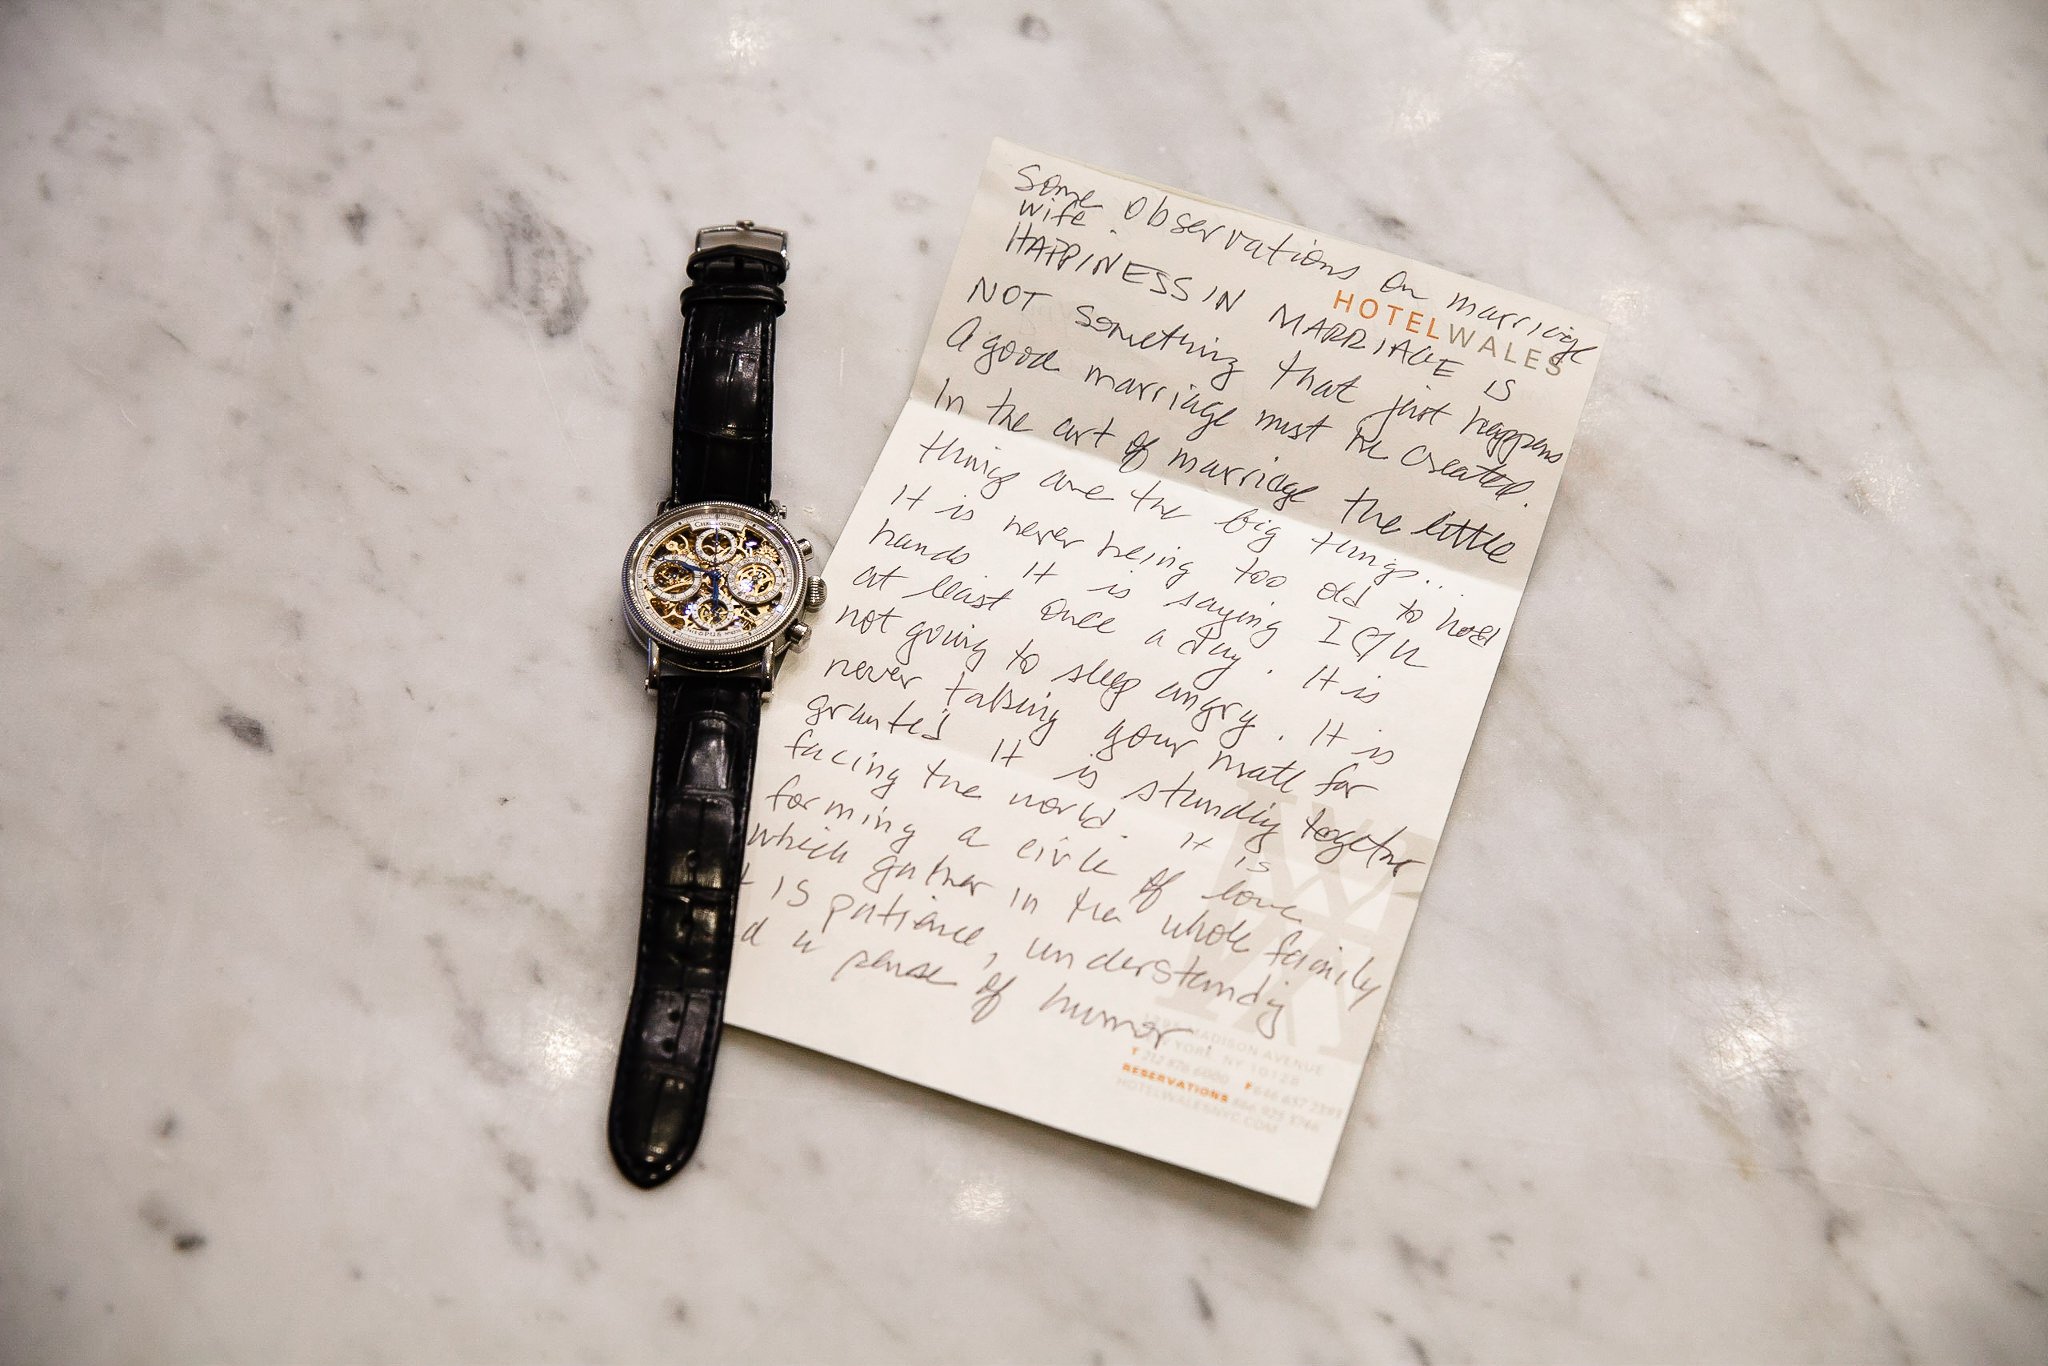 Some observations on marriage
wife.
HOTELWALES
HAPPINESS IN MARRIAGE IS
NOT something that just happens
A good marriage must be created.
In the art of marriage the little
things are the big things...
It is never being too old to hold
hands It is saying I
at least once a day. It is
not going to sleep angry. It is
never taking your mate for
granted It is standing together
facing the world. It is
forming a circle of love
which gather in the whole family
t is patience, understanding
d a sense of humor.
MADISON AVENUE
YORK, NY 10128
T 212 876 6000 F 646 657 2391
RESERVATIONS 866 925 3746
HOTELWALESNYC.COM
CHRONOSWISS
OPUS